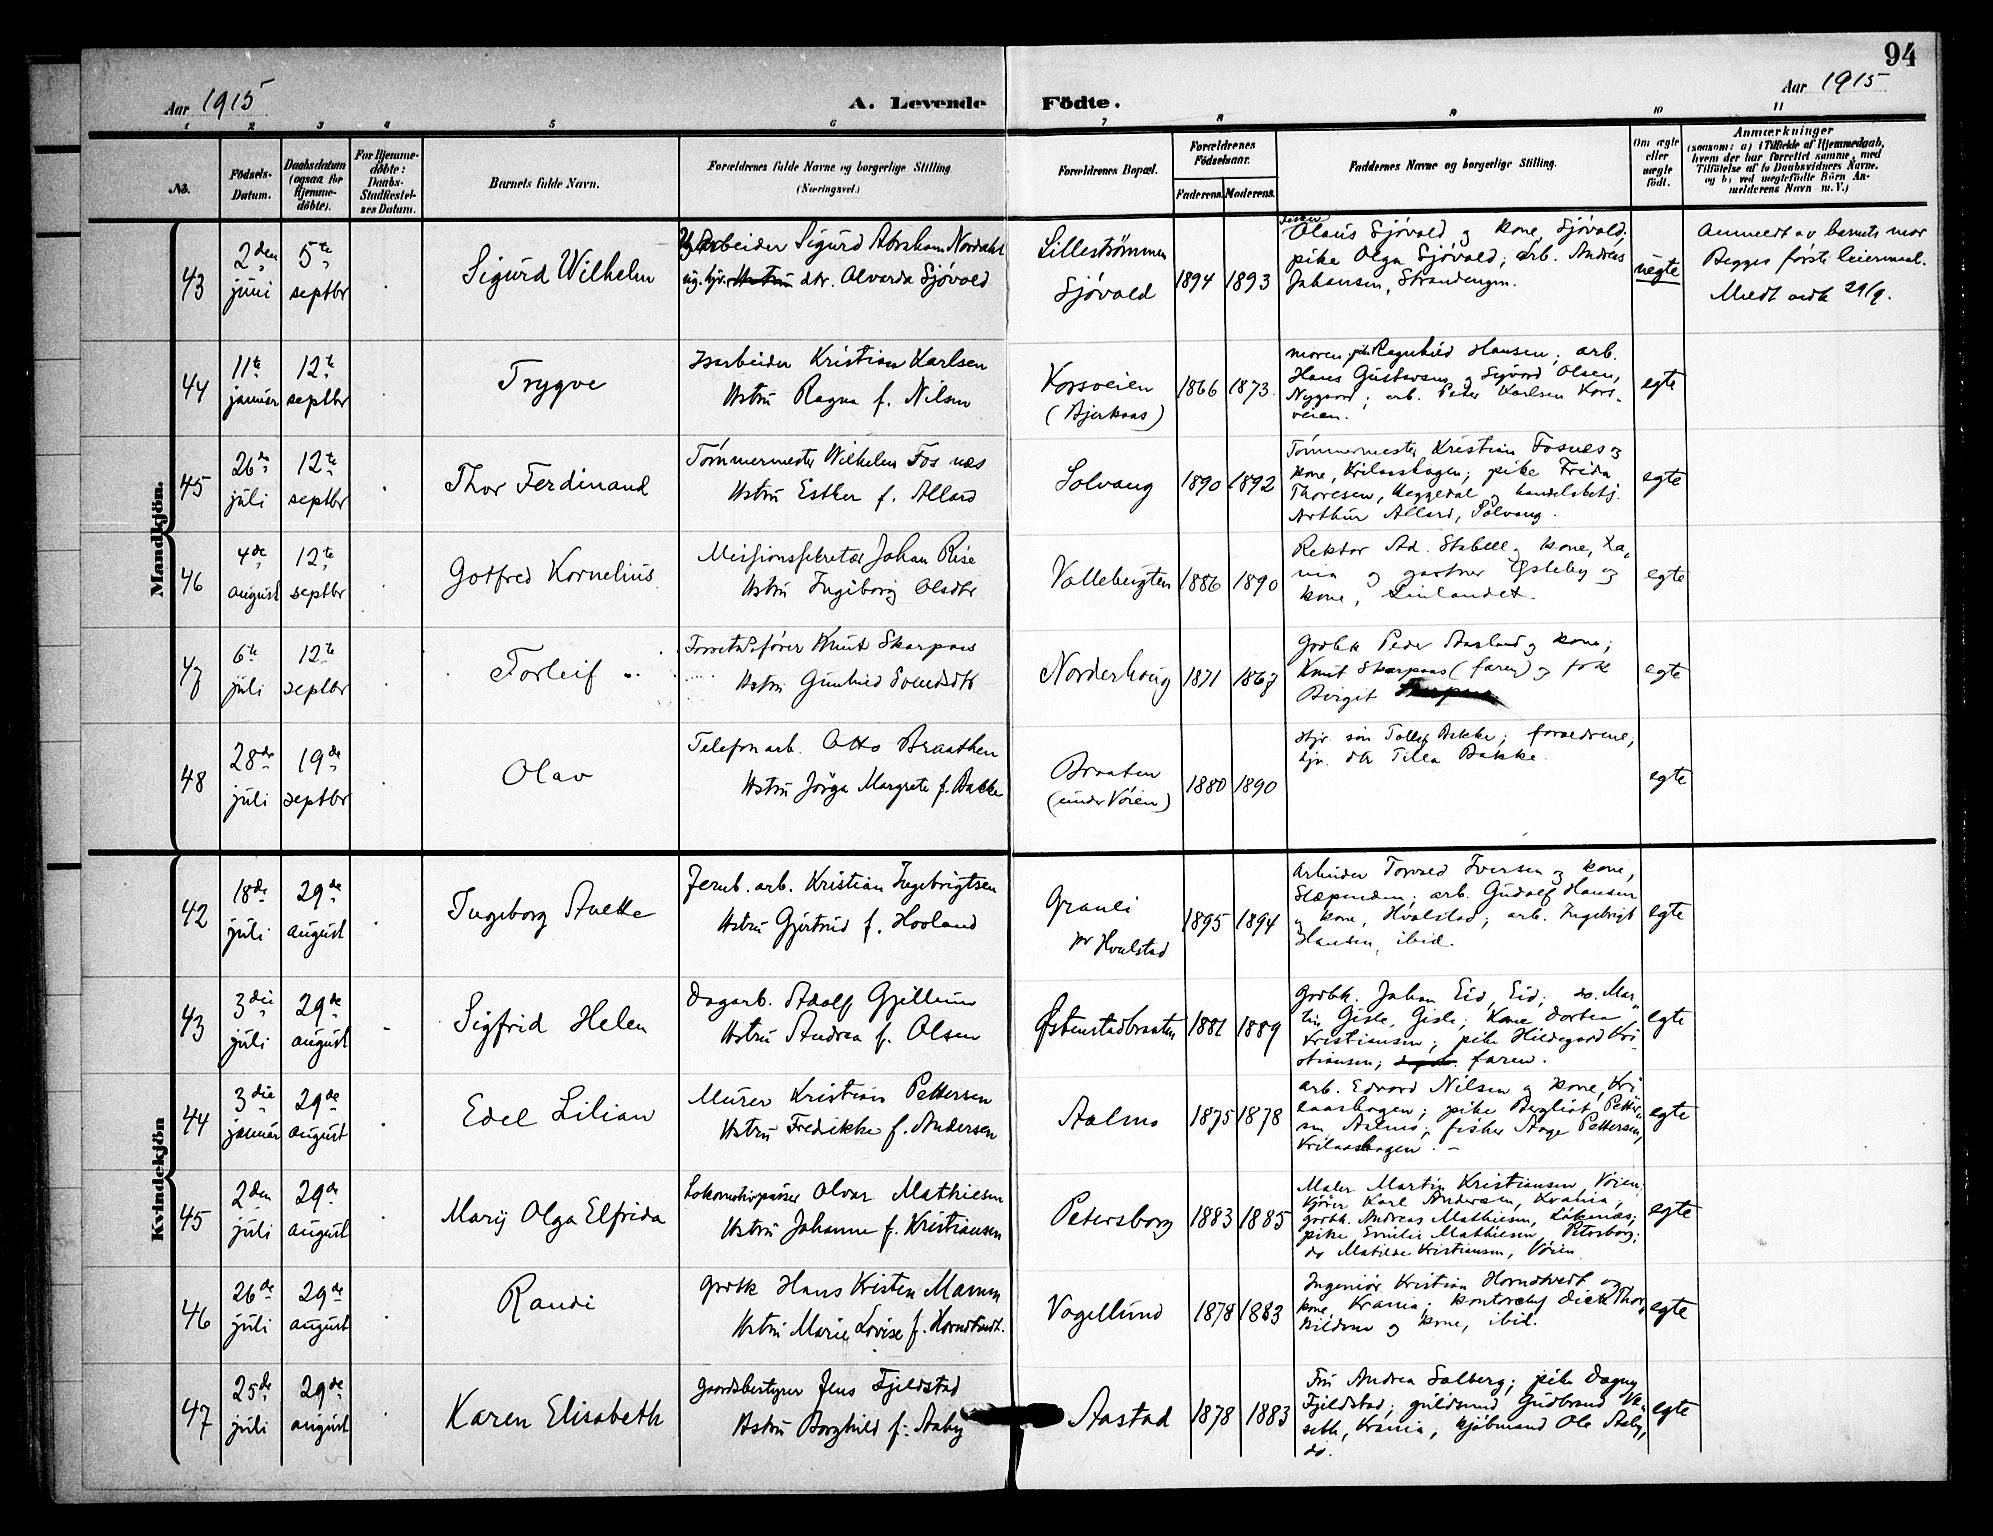 94
Aar 1915
A. Levende Födte.
Aar 1915
1 2 3 4 5 6 7 8 9 10 11
No.
Födsels-
Datum.
Daabsdatum
(ogsaa for
Hjemme-
döbte).
For Hjemme-
döbte:
Daabs-
Stadfæstel-
ses Datum.
Barnets fulde Navn.
Forældrenes fulde Navne og borgerlige Stilling
(Næringsvei.)
Forældrenes Bopæl.
Forældrenes
Födselsaar.
Faderens. Moderens.
Faddernes Navne og borgerlige Stilling.
Om ægte
eller
uægte
födt.
Anmærkninger
(saasom: a) i Tilfælde af Hjemmedaab,
hvem der har forrettet samme, med
Tilföielse af to Daabsvidners Navne.
og b) ved uægtefödte Börn An-
melderens Navn m. V.)
Mandkjön.
43
2den
juni
5te
septbr
Sigurd Wilhelm
arbeider Sigurd Abraham Nordahl
ug. hjv. Hstru dtr. Alverda Sjövold
Lillestrømmen
Sjövald
1894 1893
Olaus Sjövald og kone, Sjövald;
pike Olga Sjövald; arb. Andreas
Johansen, Strandengen.
uegte
Anmeldt av barnets mor
Begges förste leiermaal.
Meldt 29/9.
44
11te
januar
12te
septbr
Trygve
Isarbeider Kristian Karlsen
Hstru Ragna f. Nilsen
Korsveien
(Bjerkaas)
1866 1873
moren; pike Ragnhild Hansen; arb.
Hans Gustavsen og Sigvard Olsen,
Nygaard; arb. Peter Karlsen Kors-
veien.
egte
45
26de
juli
12te
septbr
Thor Ferdinand
Tömmermester Wilhelm Fosnæs
Hstru Esther f. Allard
Solvang
1890 1892
Tömmermester Kristian Fosnes og
kone, Krilaashagen; pike Frida
Thoresen, Heggedal og handelsbetj.
Arthur Allard, Solvang.
egte
46
4de
august
12te
septbr
Gotfred Kornelius
Missionssekretær Johan Rise
Hstru Ingiborg Olsdtr
Vollebergten
1886 1890
Rektor Ad. Stabell og kone, Xa-
nia og gartner og
kone,
egte
47
6te
juli
12te
septbr
Torleif
Knut Skarpaas
Hstru Gunhild Svendsdtr
Norderhaug
1871 1867
Grdbk Peder Aaslund og kone;
Knut Skarpaas (faren) og frk
Birgit
egte
48
28de
juli
19de
septbr
Olav
Telefonarb. Otto Braathen
Hstru Jörga Margrete f. Bakke
Braaten
(under Vöien)
1880 1890
Hjv. sön Tollef Bakke; forældrene,
hjv. dtr Tilla Bakke.
egte
Kvindekjön
42
18de
juli
29de
august
Ingeborg Anette
Jernb. arb. Kristian Ingebrigtsen
Hstru Gjertrud f. Hovland
Granli
pr Hvalstad
1895 1894
Arbeider Torvald Iversen og kone,
Slæpenden; arb. Gudolf Hansen
og kone, Hvalstad; arb. Ingebrigt
Hansen, ibid.
egte
43
3die
juli
29de
august
Sigfrid Helen
Dagarb. Adolf Gjellum
Hstru Andrea f. Olsen
Østenstadbraaten
1881 1889
Grdbk. Johan Eid, Eid; do. Mar-
tin Gisle, Gisle; Kone Dortea
Kristiansen; pike Hildegard Kri-
stiansen; faren.
egte
44
3die
januar
29de
august
Edel Lilian
Murer Kristian Pettersen
Hstru Fredrikke f. Andersen
Aalmo
1875 1878
arb. Edvard Nilsen og kone, Kri-
laashagen; pike Bergliot Petter-
sen Aalmo; fisker Aage Pettersen,
Krilaashagen. –
egte
45
2den
juli
29de
august
Mary Olga Elfrida
Lokomotivpusser Olvar Mathiesen
Hstru Johanne f. Kristiansen
Petersborg
1883 1885
Maler Martin Kristiansen, Vöien,
Kjörer Karl Andersen, Krania;
grdbk. Andreas Mathiesen, Lökenæs;
pike Emilie Mathiesen, Petersborg;
do Matilde Kristiansen, Vöien.
egte
46
26de
juli
29de
august
Randi
Grdbk Hans Kristen Mamen
Hstru Marie Lovise f. Horndtvedt.
Vogellund
1878 1883
Ingeniör Kristian Horndtvedt og
kone, Krania; kontorchef Dick Thor-
kildsen og kone, ibid.
egte
47
25de
juli
29de
august
Karen Elisabeth
Gaardsbestyrer Jens Fjeldstad
Hstru Borghild f. Aaby
Aastad
1878 1883
Fru Andrea Solberg; pike Dagny
Fjeldstad; guldsmed Gudbrand Va-
seth, Krania, kjöbmand Ole Aaby,
do.
egte